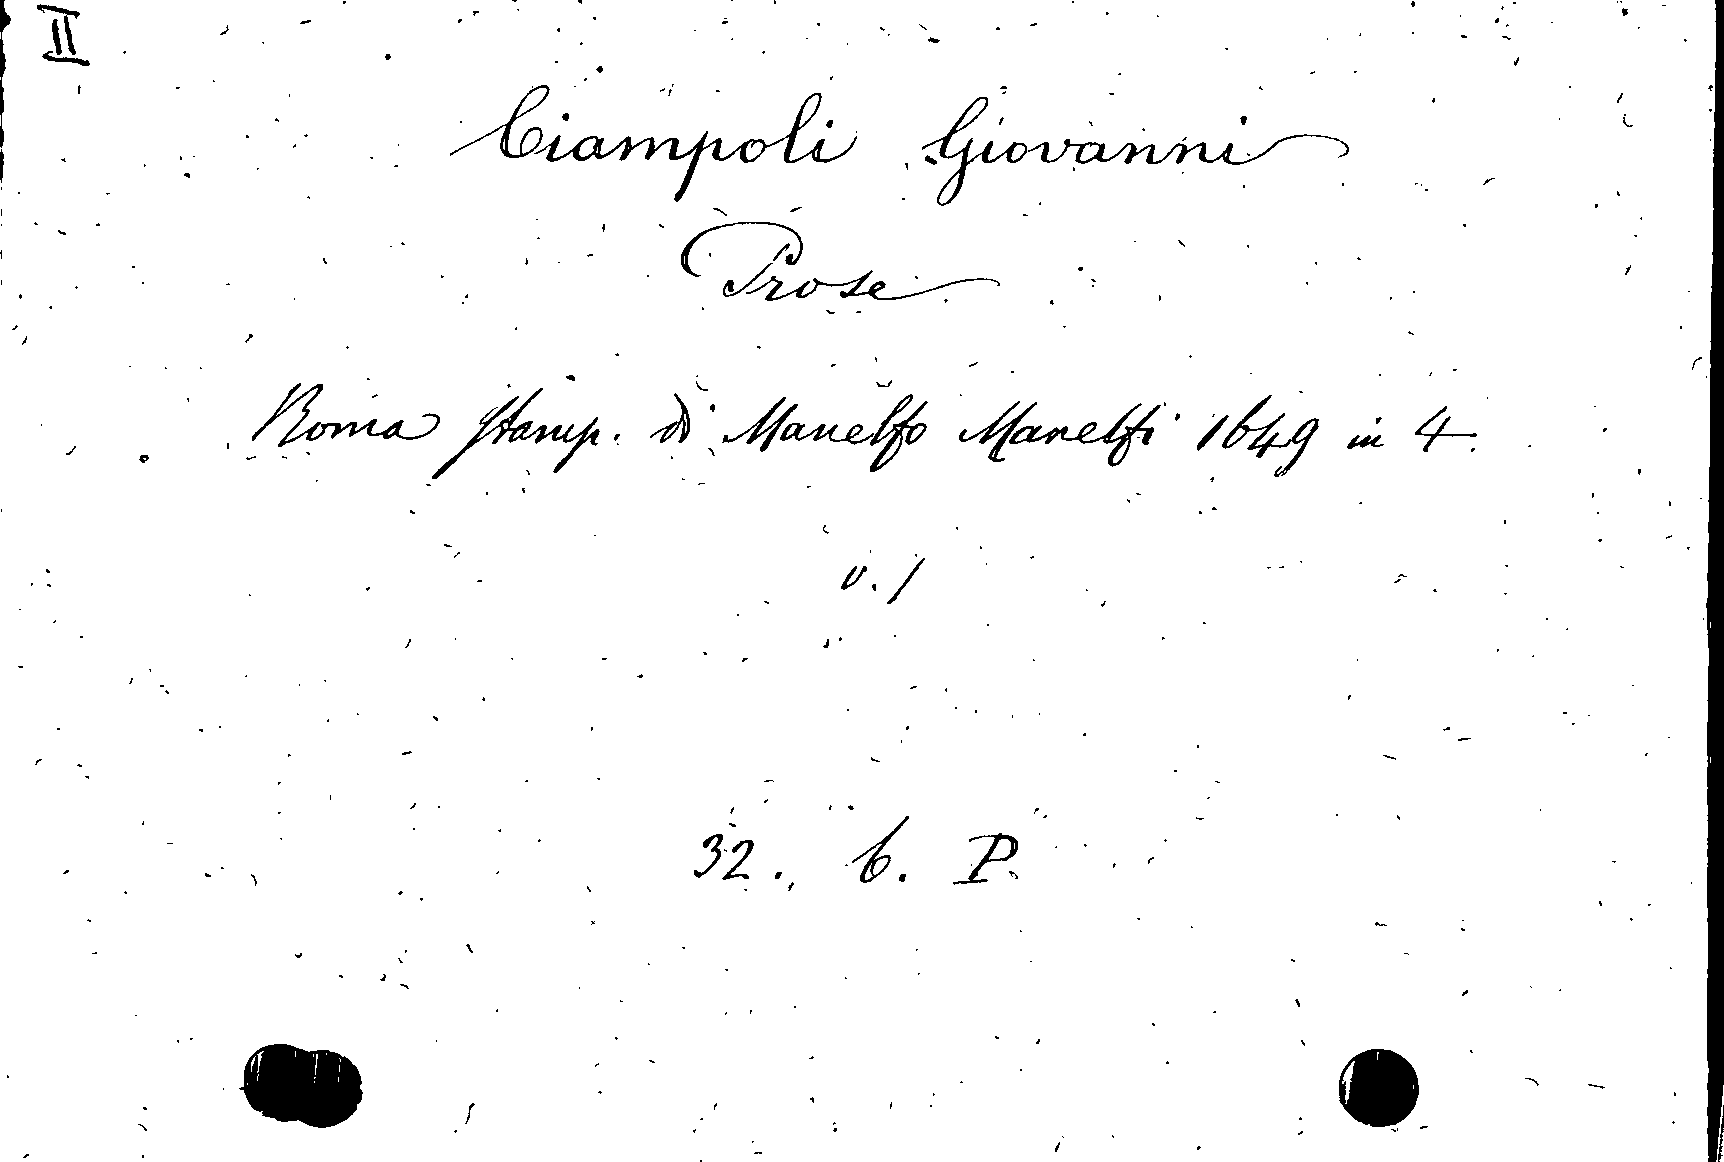 II
Ciampoli Giovanni
Prose
Roma Stamp. di Manelfo Manelfi 1649 in 4.
v. 1
32. b. P.